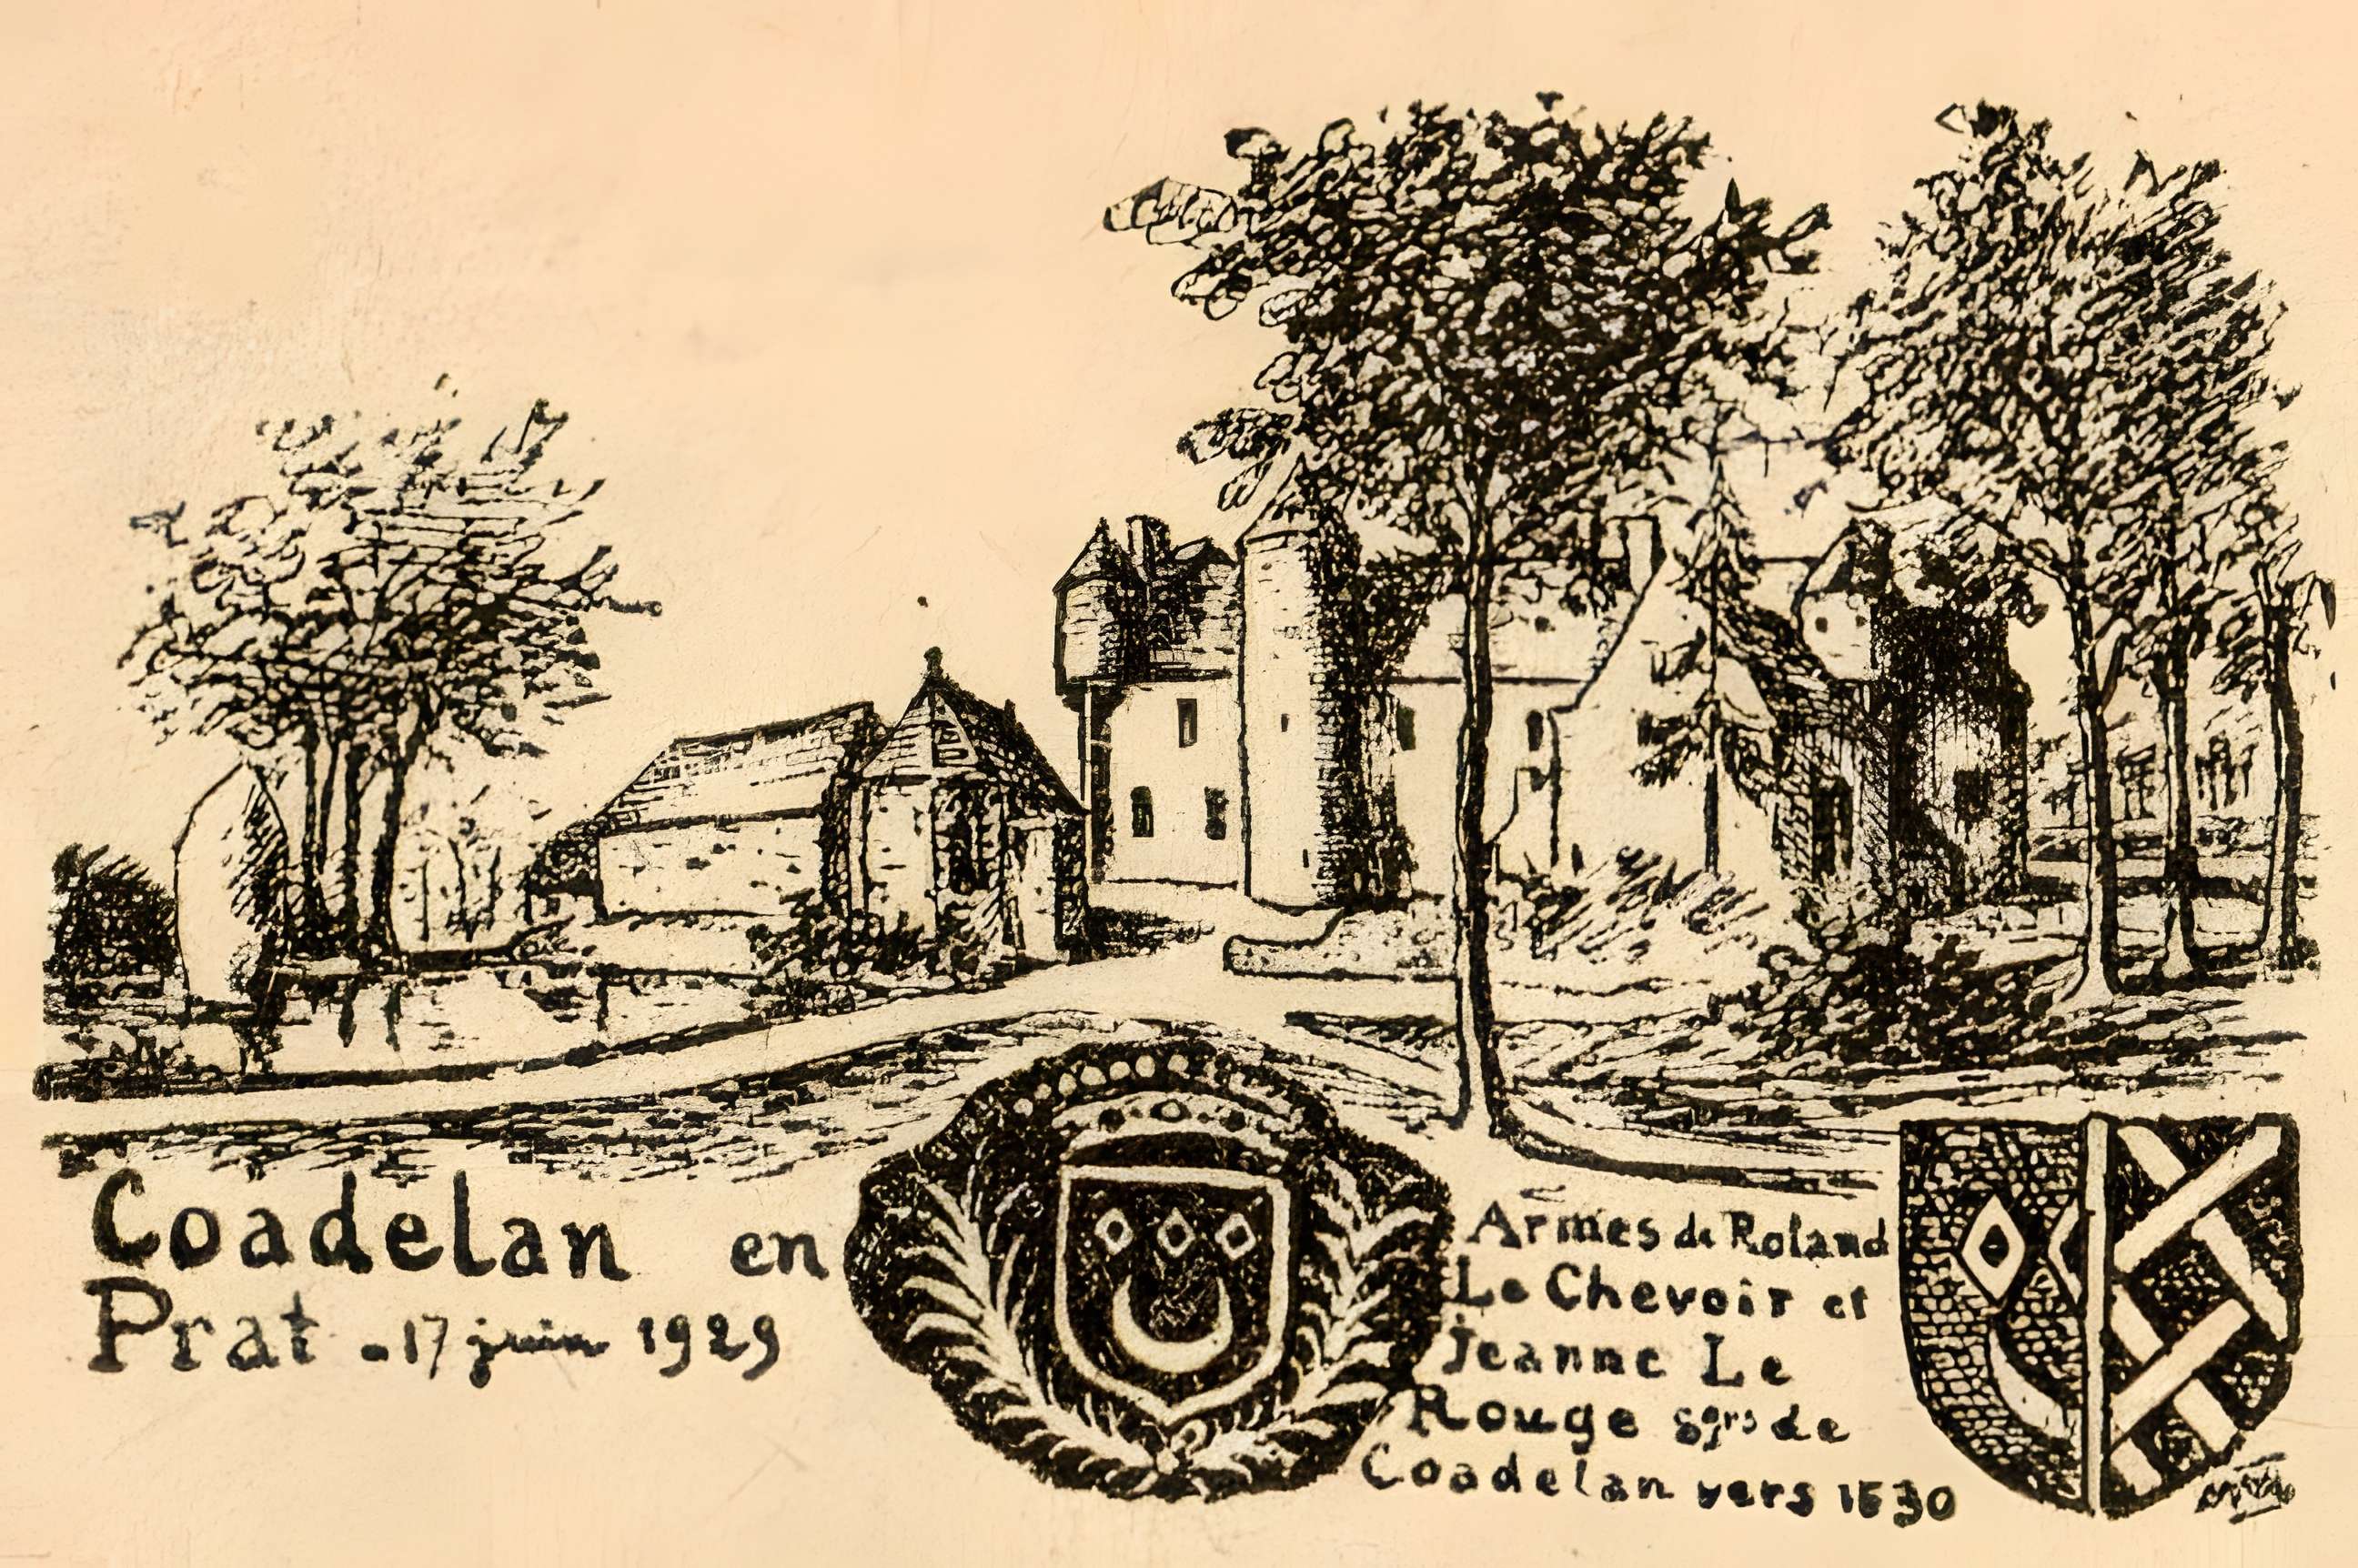 Coadelan en
Prat - 17 juin 1929
Armes de Roland
Le Chevoir et
Jeanne Le
Rouge sgrs de
Coadelan vers 1530